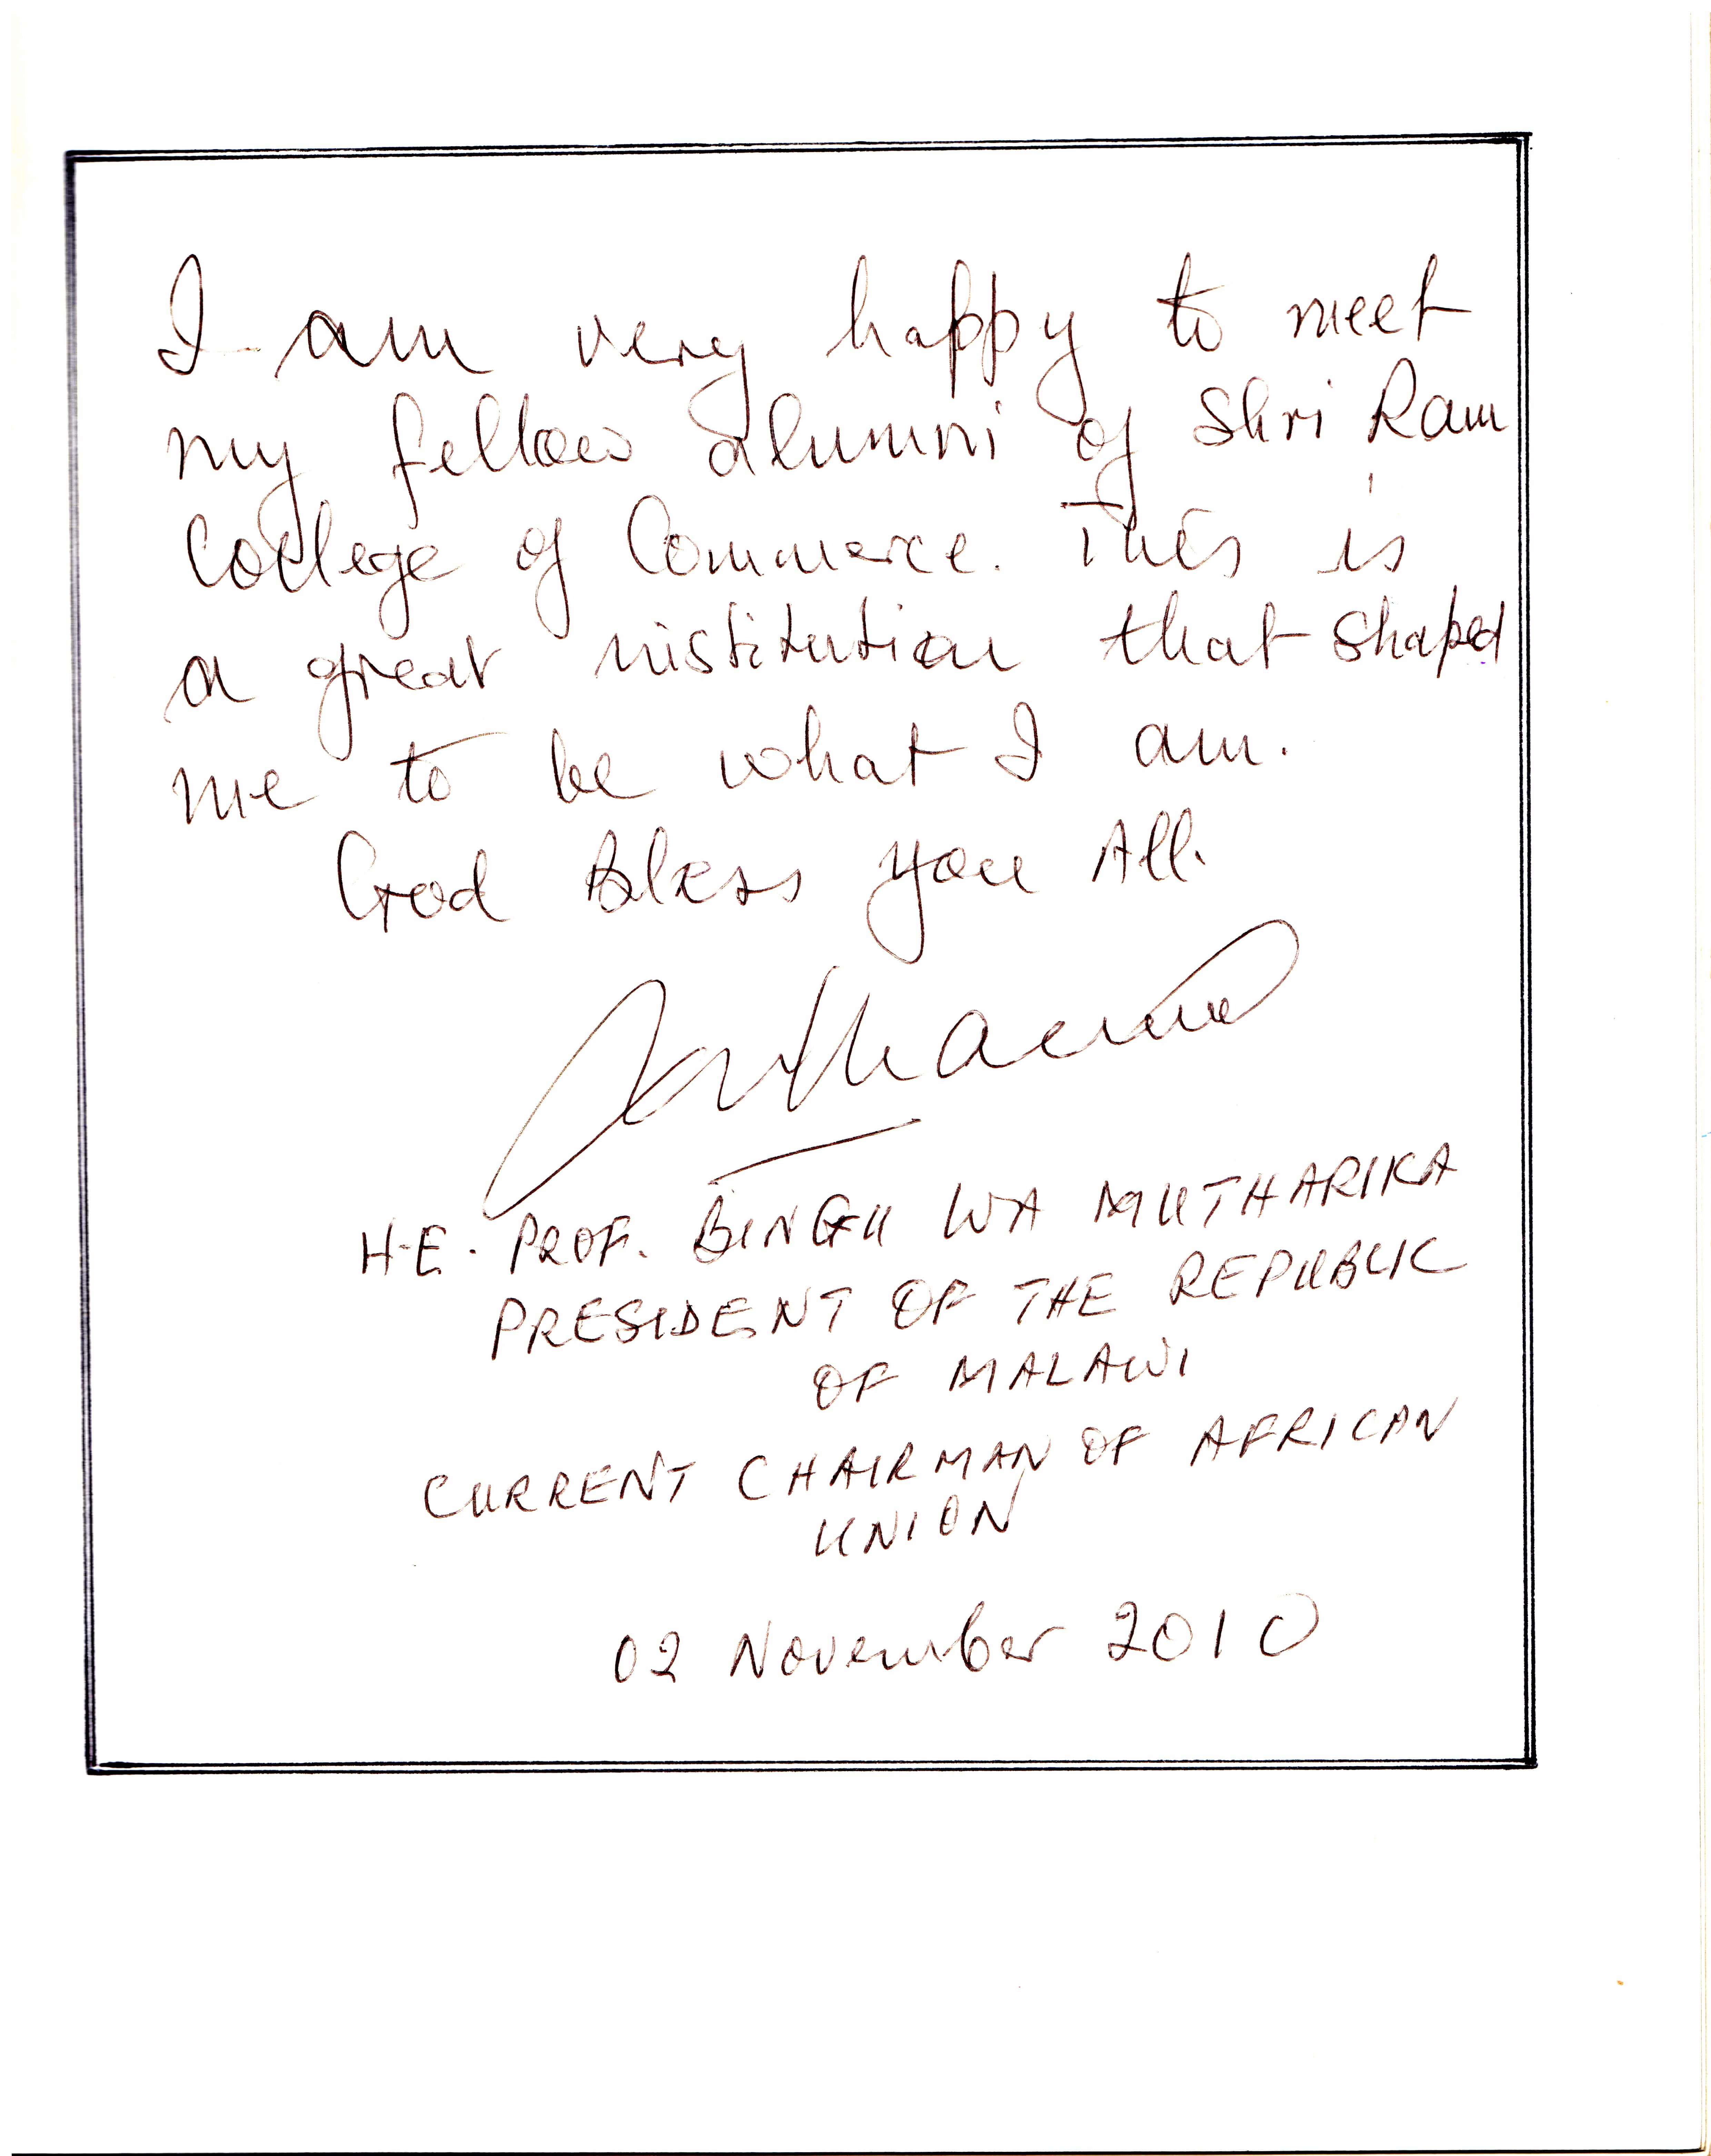 I am very happy to meet
my fellow alumni of Shri Ram
College of Commerce. This is
a great institution that shaped
me to be what I am.
God Bless you All.
H.E. PROF. BINGU WA MUTHARIKA
PRESIDENT OF THE REPUBLIC
OF MALAWI
CURRENT CHAIRMAN OF AFRICAN
UNION
02 November 2010